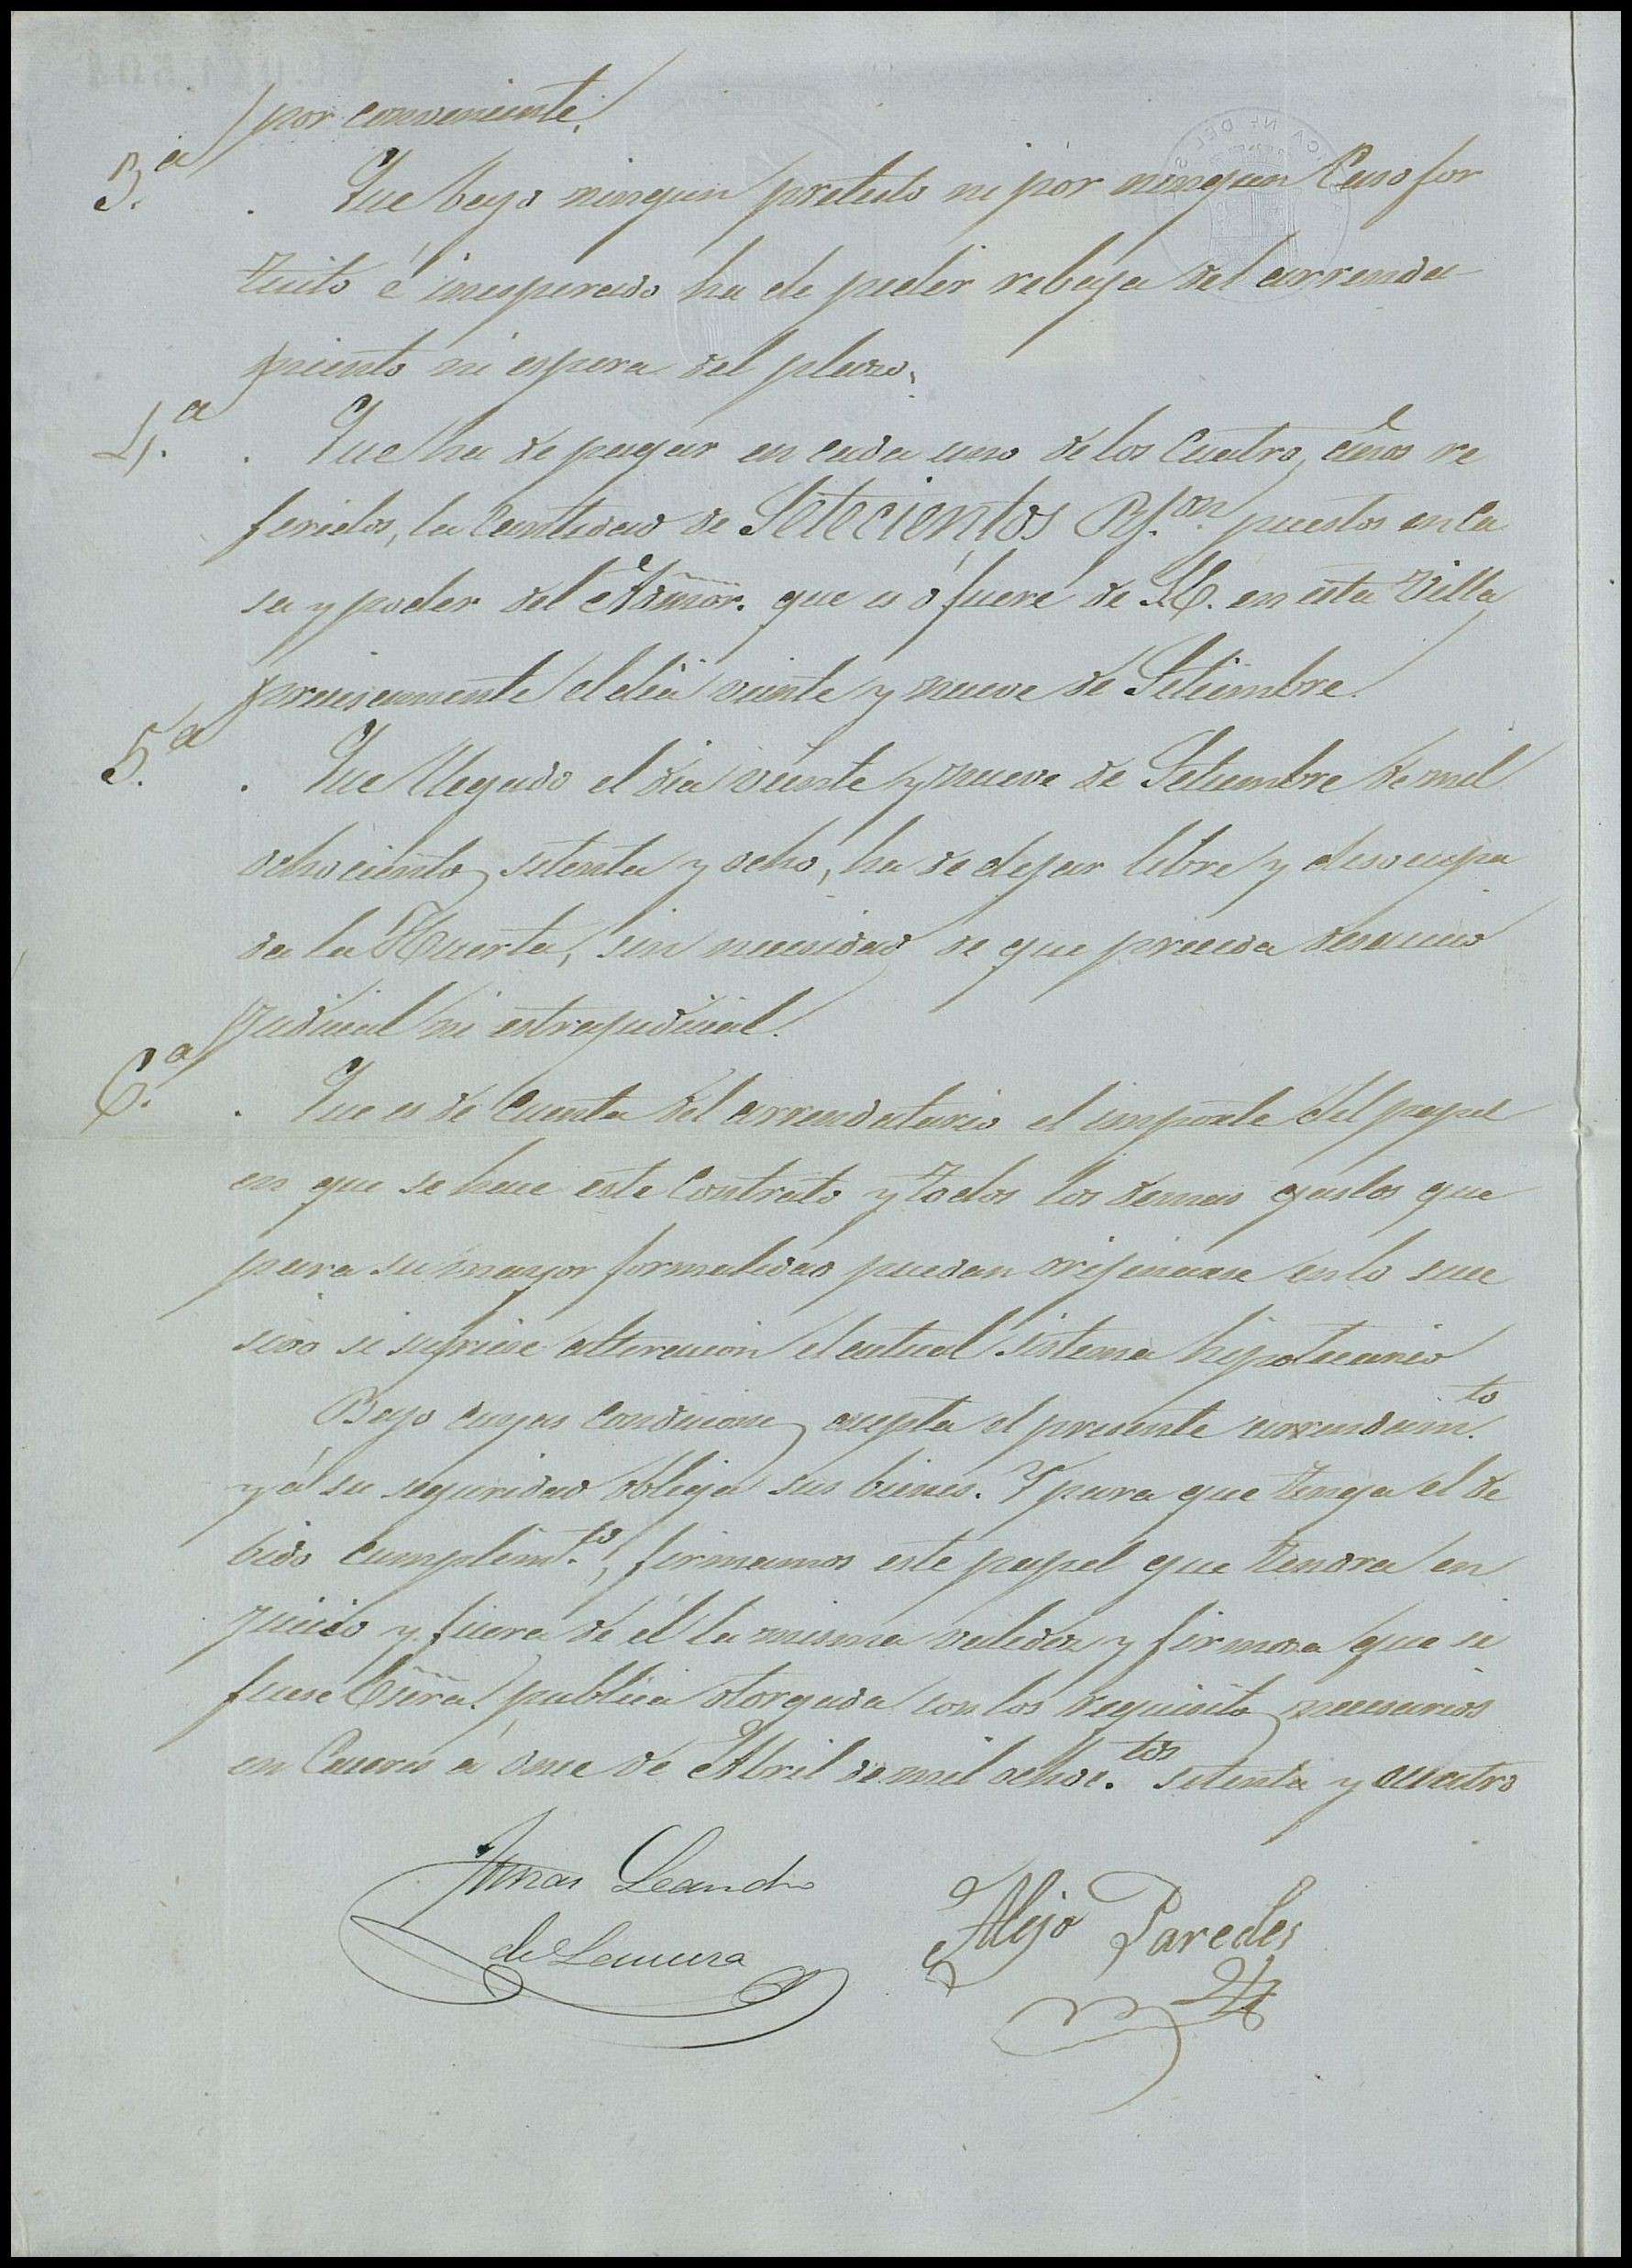 por conveniente.
3.ª . Que bajo ningun pretesto ni por ningun Caso for
tuito é inesperado ha de pedir rebaja del arrenda
miento ni espera del plazo.
4.ª . Que ha de pagar en cada uno de los Cuatro años re
feridos, la Cantidad de Setecientos Rs. on. puestos en ca
sa y poder del Admor. que es ó fuere de S.E. en esta Villa
precisamente el dia veinte y nueve de Setiembre.
5.ª . Que llegado el dia veinte y nueve de Setiembre de mil
ochocientos setenta y ocho, ha de dejar libre y desocupa
da la Huerta, sin necesidad de que preceda desaucio
judicial ni estrajudicial.
6.ª . Que es de Cuenta del arrendatario el importe del papel
en que se hace este Contrato y todos los demas gastos que
para su mayor formalidad puedan orijinarse en lo suce
sivo si sufriese alteracion el actual sistema hipotecario
Bajo cuyas condiciones acepta el presente arrendam.to
y á su seguridad obliga sus bienes. Y para que tenga el de
bido cumplimt.to, firmamos este papel que tendra en
juicio y fuera de él la misma validez y firmeza que si
fuese Escra. publica otorgada con los requisitos necesarios
en Caceres á once de Abril de mil ochoc.tos setenta y cuatro
Leandro
de
Alejo Paredes